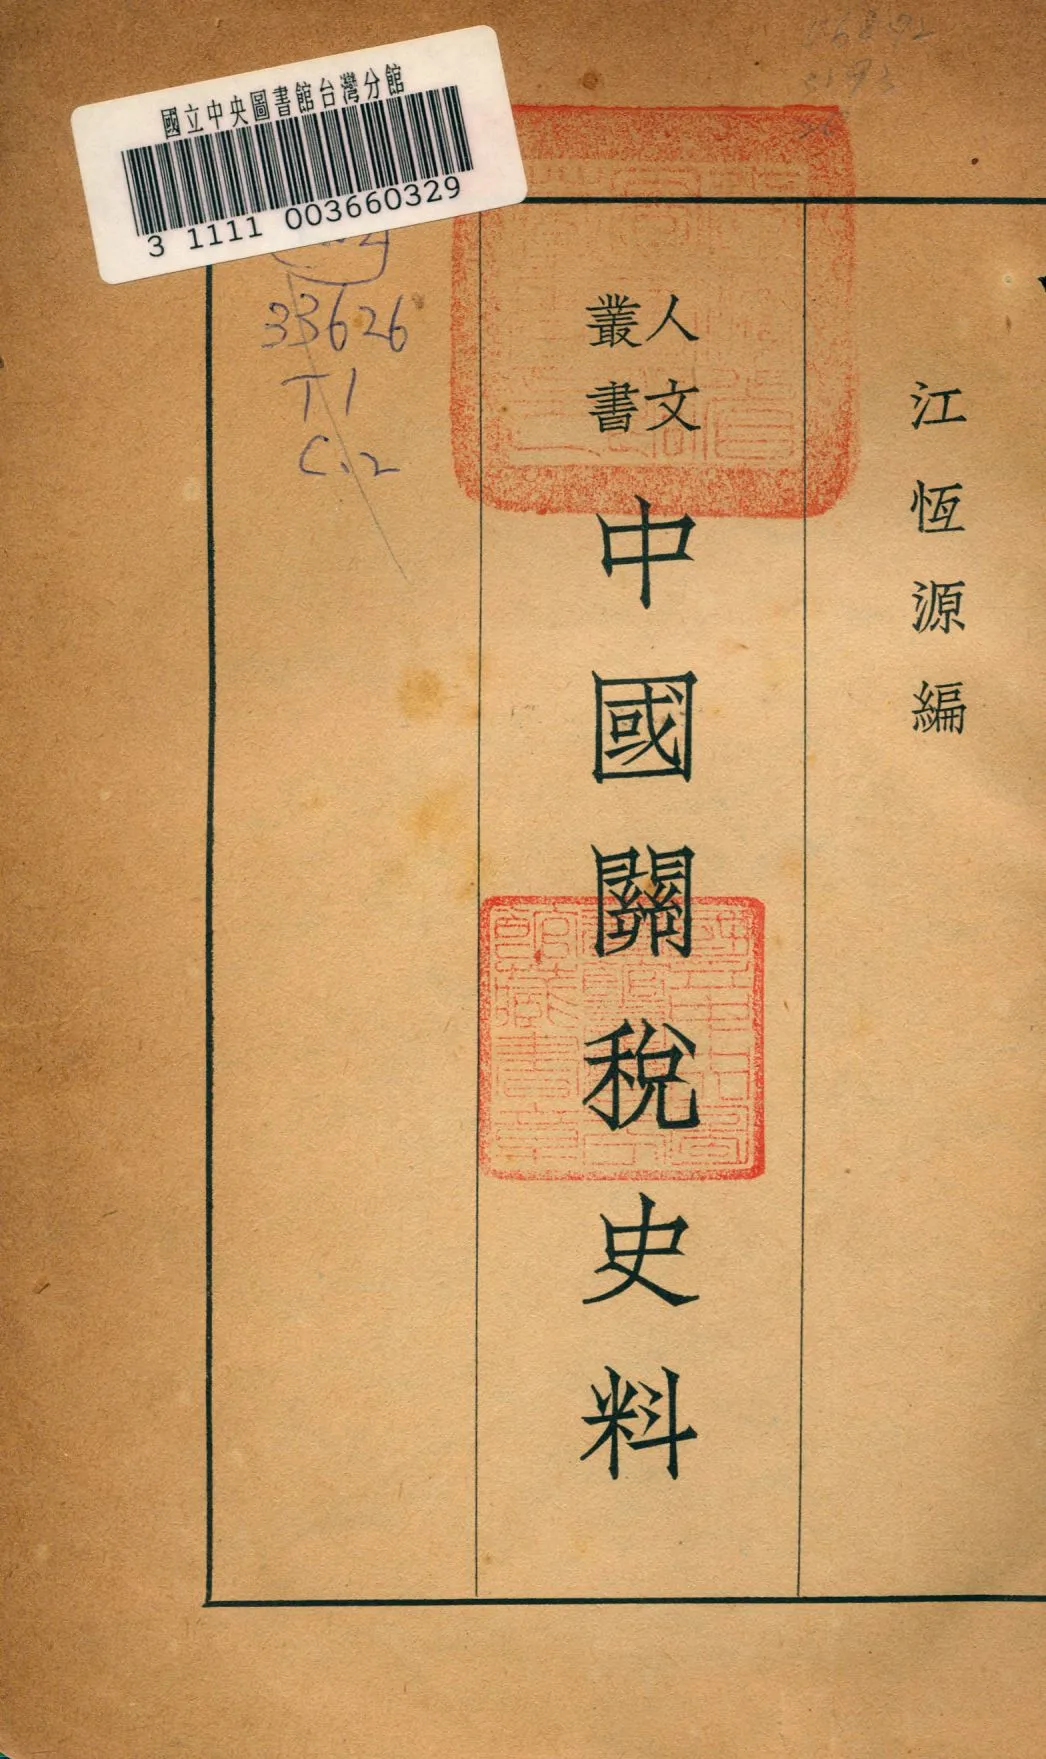 國立中央圖書館台灣分館
3 1111 003660329
33626
T1
C.2
江恆源編
人文
叢書
中國關稅史料